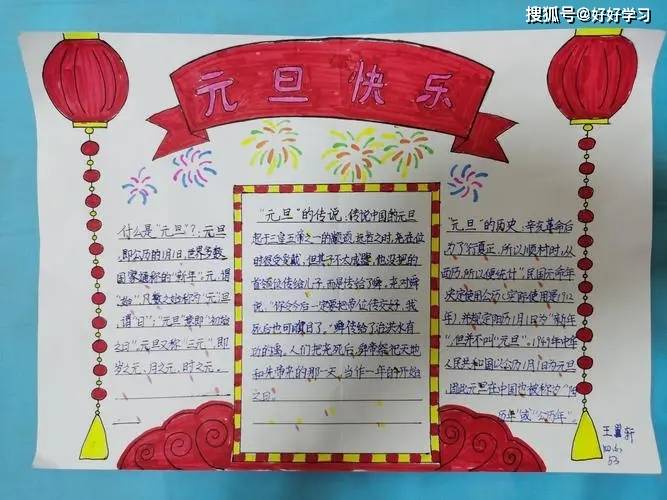 搜狐号@好好学习
元旦快乐
什么是"元旦"?:元旦
即公历的1月1日,世界多数
国家通称的"新年"。元,谓
"始",凡数之始称为"元";旦
谓"日";"元旦"意即"初始
之日"。元旦又称"三元",即
岁之元、月之元、时之元。
"元旦"的传说:传说中国的元旦
起于三皇五帝之一的
时很受爱戴,但其子不太成器,他没把的
首领议传给儿子,而是传给了舜,尧对舜
说,"你今今后一定要把帝位传交好,我
死后也可瞑目了。"舜传给了治洪水有
功的禹,人们把尧死后,舜帝祭祀天地
和先帝尧的那一天,当作一年的开始
之日。
"元旦"的历史:辛亥革命后
为了行夏正,所以顺时,从
西历,所以便统计",民国元年
决定使用公历(实际使用是1912
年),并规定阳历1月1日为"新年
",但并不叫"元旦"。1949年中华
人民共和国以公历1月1日为元旦
因此元旦在中国也被称为"阳
历年"或"公历年"。
王
四
53